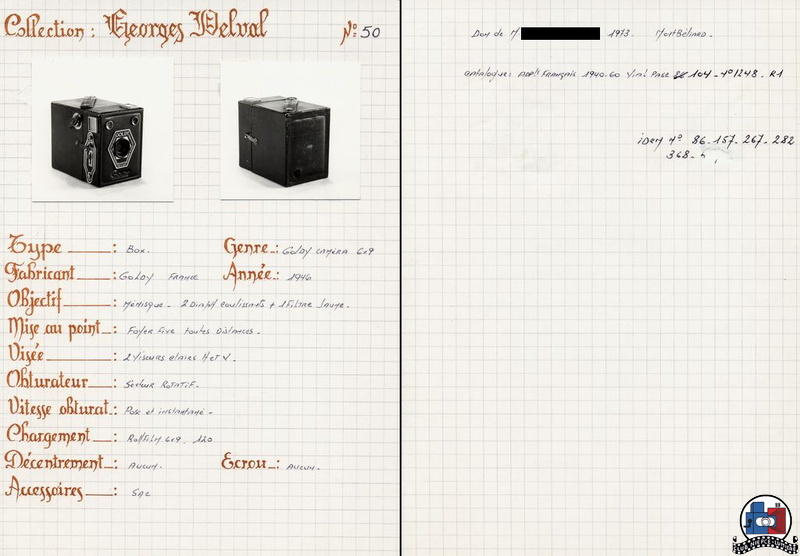 Collection : Georges Delval
N°: 50
GOLDY
Type : Box.
Genre : Goldy Caméra 6x9
Fabricant : Goldy France
Année : 1946
Objectif : Ménisque - 2 Diaph/ coulissants + 1 Filtre Jaune.
Mise au point : Foyer Fixe toutes Distances -
Visée : 2 Viseurs clairs H et V -
Obturateur : Secteur Rotatif -
Vitesse obturat. : Pose et instantané -
Chargement : Roll Film 6x9 . 120
Décentrement : Aucun.
Ecrou : Aucun.
Accessoires : Sac
Don de M 1973. Montbéliard.
Catalogue: App/t Français 1940-60 Vial Page 104 - N° 1248 - R1
iDem N° 86 - 157 - 267 - 282
368 -